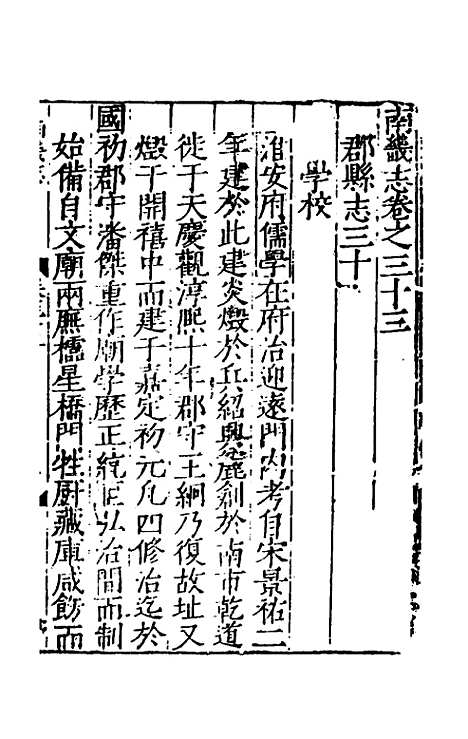 南畿志卷之三十三
郡縣志三十
學校
淮安府儒學在府治迎遠門內考自宋景祐二
年建於此建炎燬於兵紹興麄創於南市乾道
徙于天慶觀淳熙十年郡守王綱乃復故址又
燬于開禧中而建于嘉定初元凡四修治迄於
國初郡守潘傑重作廟學歷正統弘治間而制
始備自文廟兩廡櫺星橋門牲厨藏庫咸飭而